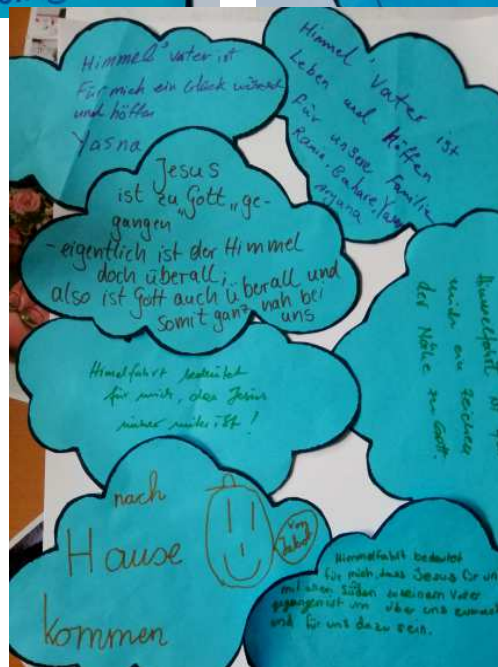 Himmels Vater ist
Für mich ein Glück wünsch
und höffen
Yasna
Himmel, Vater ist
Leben und höffen
Für unsere Familie
Ramin, Bahare, Yasna
Aryana
Jesus
ist zu Gott „ge-
gangen
- eigentlich ist der Himmel
doch überall;
also ist Gott auch überall und
somit ganz nah bei
uns
Himmelfahrt
mich ein Zeichen
der Nähe zu Gott.
Himelfahrt bedeutet
für mich, das Jesus
immer ist!
nach
Hause
kommen
im
Gebet
Himmelfahrt bedeutet
für mich, dass Jesus für un
mit allen Süden zu seinem Vater
gegangen ist um über uns
und für uns da zu sein.